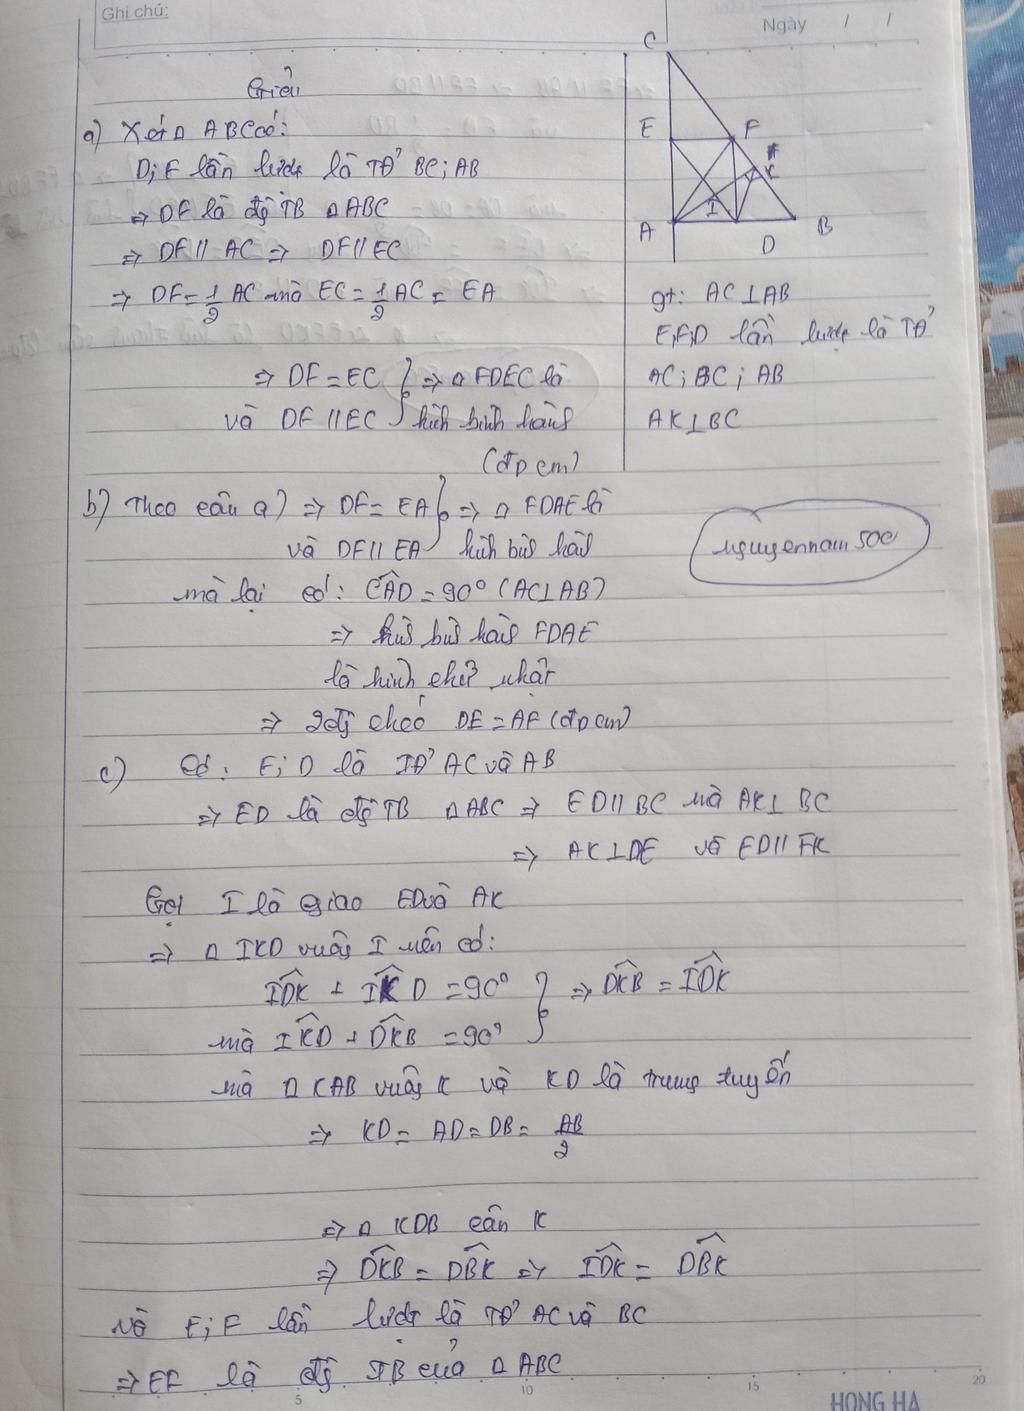 Ghi chú:
Ngày / /
Giải
a) Xét Δ ABC có:
D; F lần lượt là TĐ' BC; AB
=> DF là đg TB Δ ABC
=> DF // AC => DF // EC
=> DF = 1/2 AC mà EC = 1/2 AC = EA
=> DF = EC } => Δ FDEC là
và DF // EC } hình bình hành
(đpcm)
C
E F
K
I
A D B
gt: AC ⊥ AB
E,F,D lần lượt là TĐ'
AC; BC; AB
AK ⊥ BC
b) Theo câu a) => DF = EA } => Δ FDAE là
và DF // EA } hình bình hành
mà lại có: CAD^ = 90° (AC ⊥ AB)
=> hình bình hành FDAE
là hình chữ nhật
=> 2 đg chéo DE = AF (đpcm)
nguyennam50c
c) Có: E; D là TĐ' AC và AB
=> ED là đg TB Δ ABC => ED // BC mà AK ⊥ BC
=> AK ⊥ DE và ED // FK
Gọi I là giao ED và AK
=> Δ IKD vuông I nên có:
IDK^ + IKD^ = 90° } => DKB^ = IDK^
mà IKD^ + DKB^ = 90° }
mà Δ KAB vuông K và KD là trung tuyến
=> KD = AD = DB = AB/2
=> Δ KDB cân K
=> DKB^ = DBK^ => IDK^ = DBK^
và E; F lần lượt là TĐ' AC và BC
=> EF là đg TB của Δ ABC
5 10 15 20
HONG HA